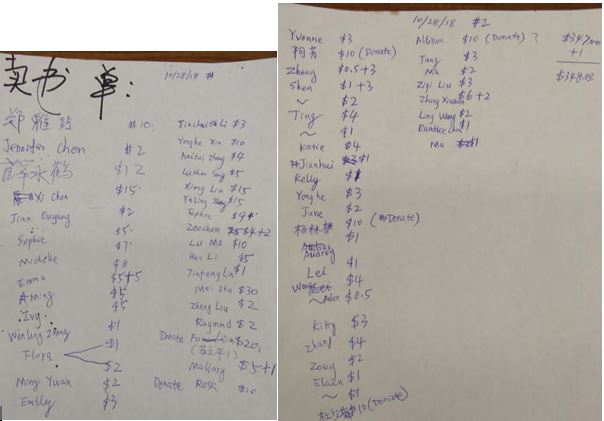 卖书单:
10/28/18 #1
郑雅 $10
Jennifer Chen $2
$12
Xi Chen $15
Jian Ouyang $2
Sophie $5
Michelle $7
Emma $8
Ming $5+5
$5
Ivy $5
Winling Zhang $1
Flora $1
$2
Ming Yuan $2
Emily $3
Li $3
Yonghe Xin $10
Kaihui Zhang $4
Song $5
Xiong Liu $15
Yaling Zhang $15
Sophie $9
Zeeshan $4+2
Lu Ma $10
Hua Li $5
Jinfeng Lin $1
Mei Zhu $30
Zheng Liu $2
Raymond $2
Donate Lilian $20
Mallory $5+1
Donate Rosa $10
10/28/18 #2
Yvonne $3
柯芳 $10 (Donate)
Zheng $0.5+3
Shen $1+3
~ $2
Ting $4
~ $1
Katie $4
Jianhui $1
Kelly $1
Yonghe $3
Jane $2
杨林 $10 (Donate)
Audrey $1
Lei $1
Wang $4
~ $0.5
Kitty $3
Zhang $4
Zoey $2
Elain $1
~ $1
$10 (Donate)
Allison $10 (Donate) ?
Tang $3
Ma $2
Ziqi Liu $3
Zhang $6+2
Ling Wang $2
$1
Ma $1
$347.00
+1
$348.00